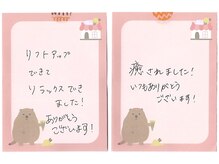 リフトアップ
できて
リラックスでき
ました!
ありがとう
ございます!
癒されました!
いつもありがとう
ございます!